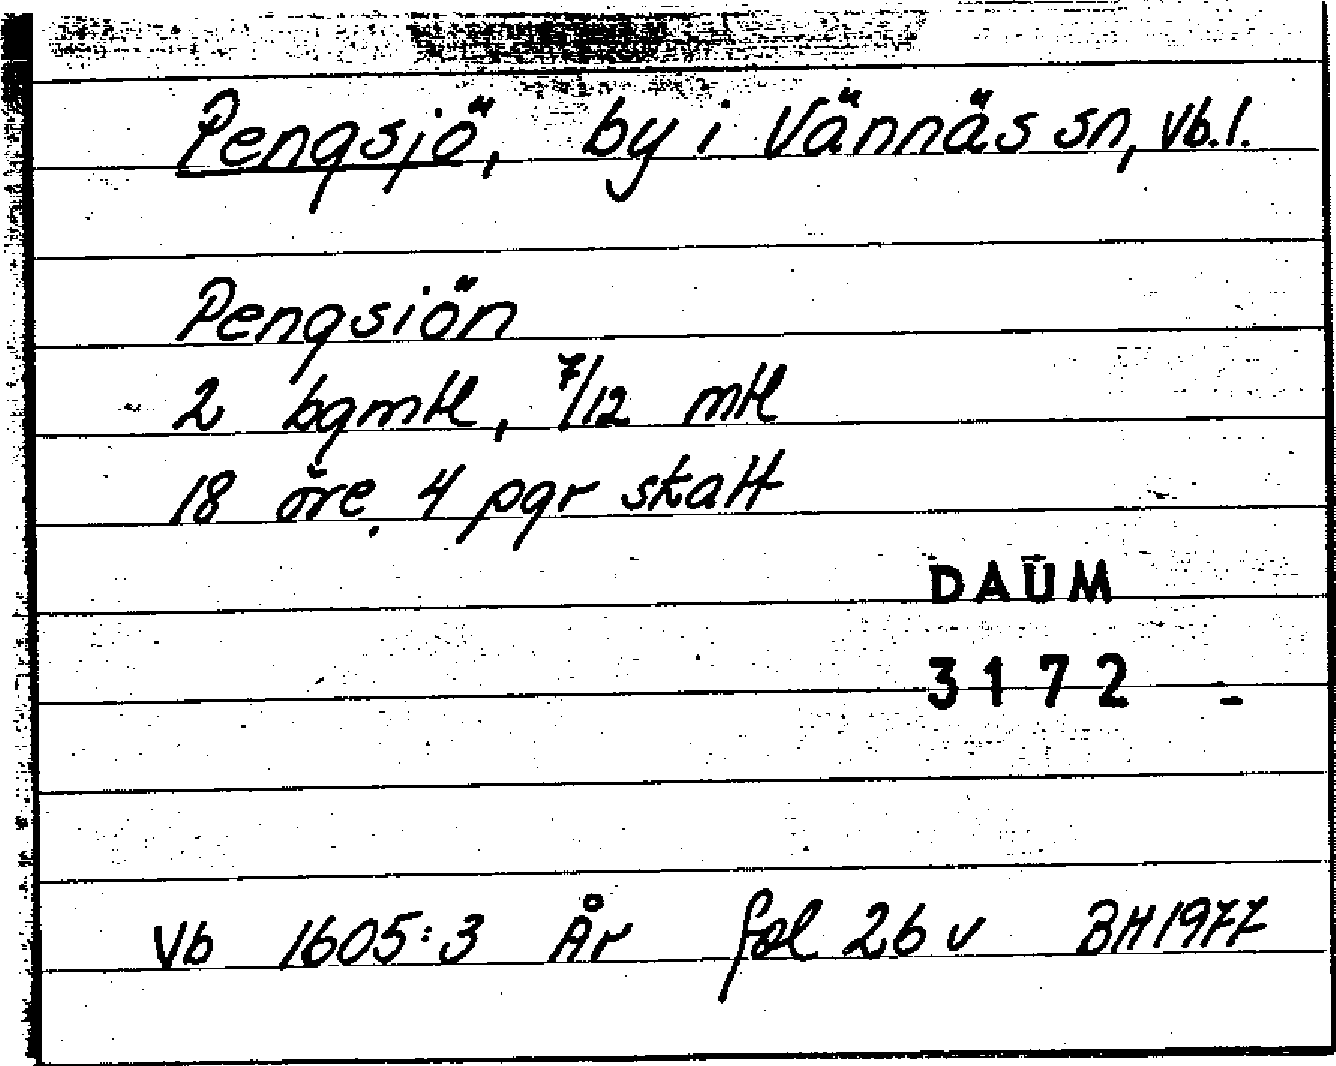 Pengsjö, by i Vännäs sn, Vb.l.
Pengsiön
2 bgmtl, 7/12 mtl
18 öre 4 pgr skatt
DAUM
3172 -
Vb 1605:3 År fol 26 v BH 1977